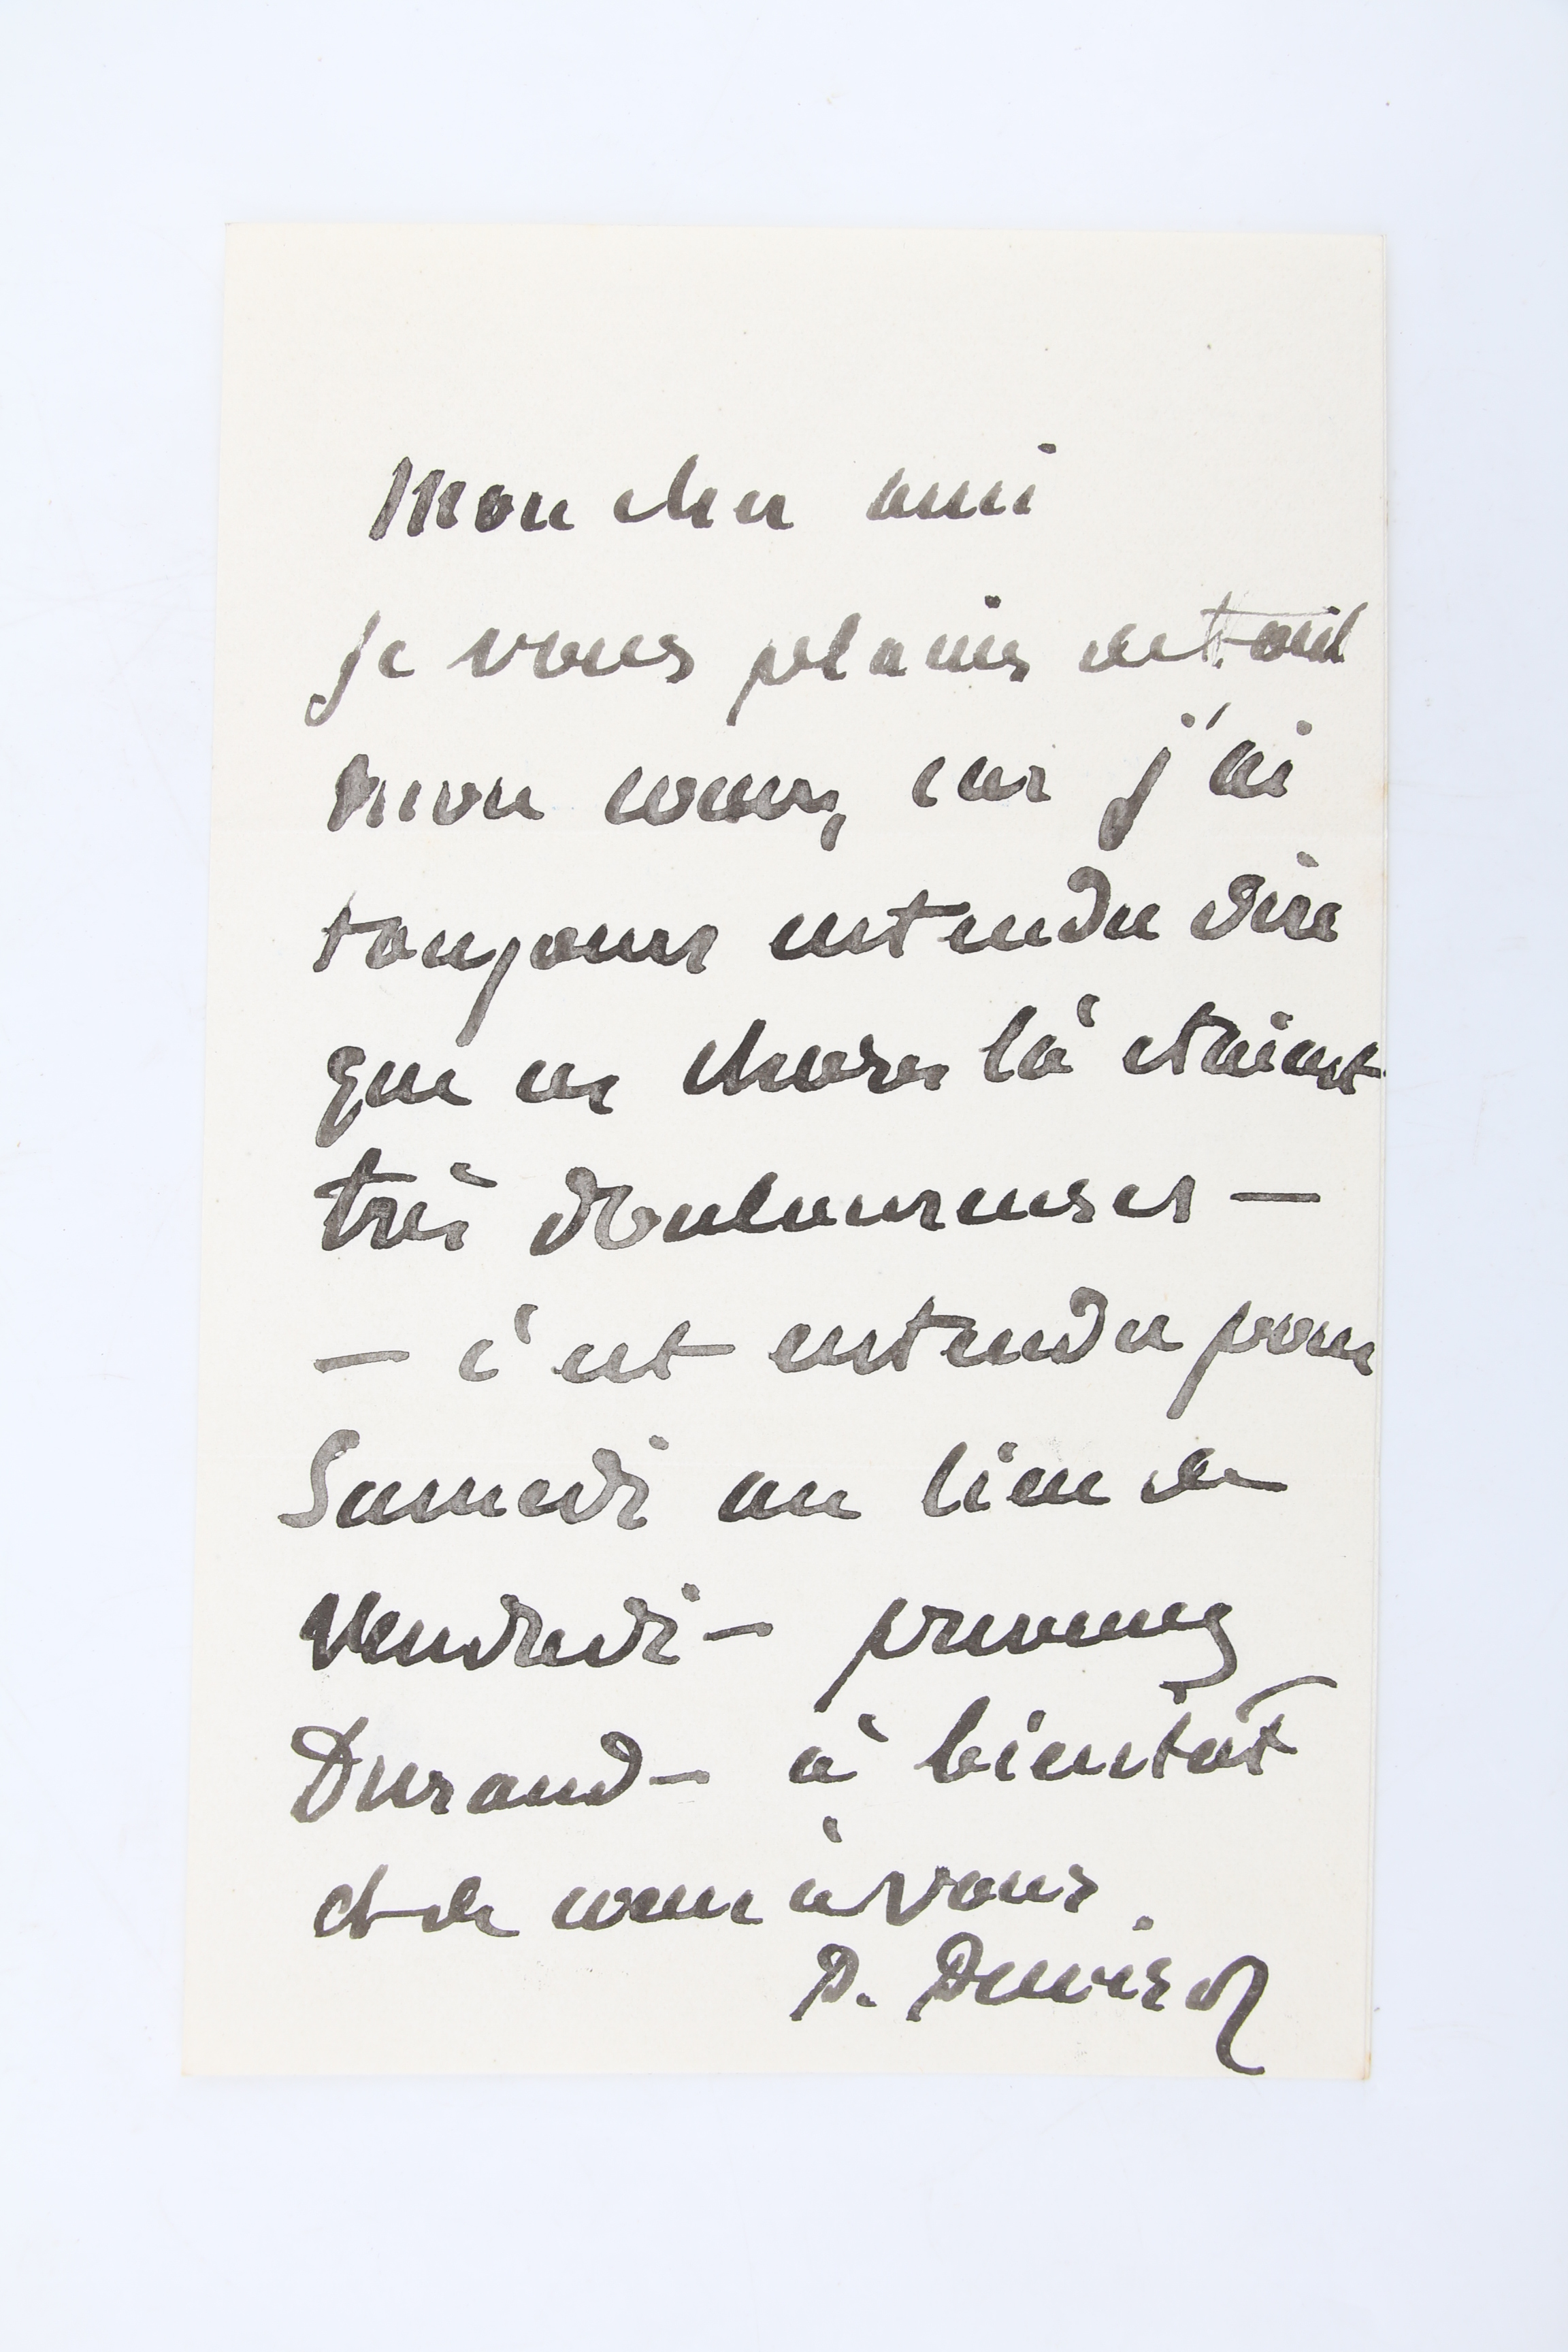 Mon cher ami
je vous plains de tout
mon coeur, car j'ai
toujours entendu dire
que ces choses là étaient
très douloureuses —
— c'est entendu pour
Samedi au lieu de
Vendredi — prévenez
Durand — à bientôt
et de coeur à vous.